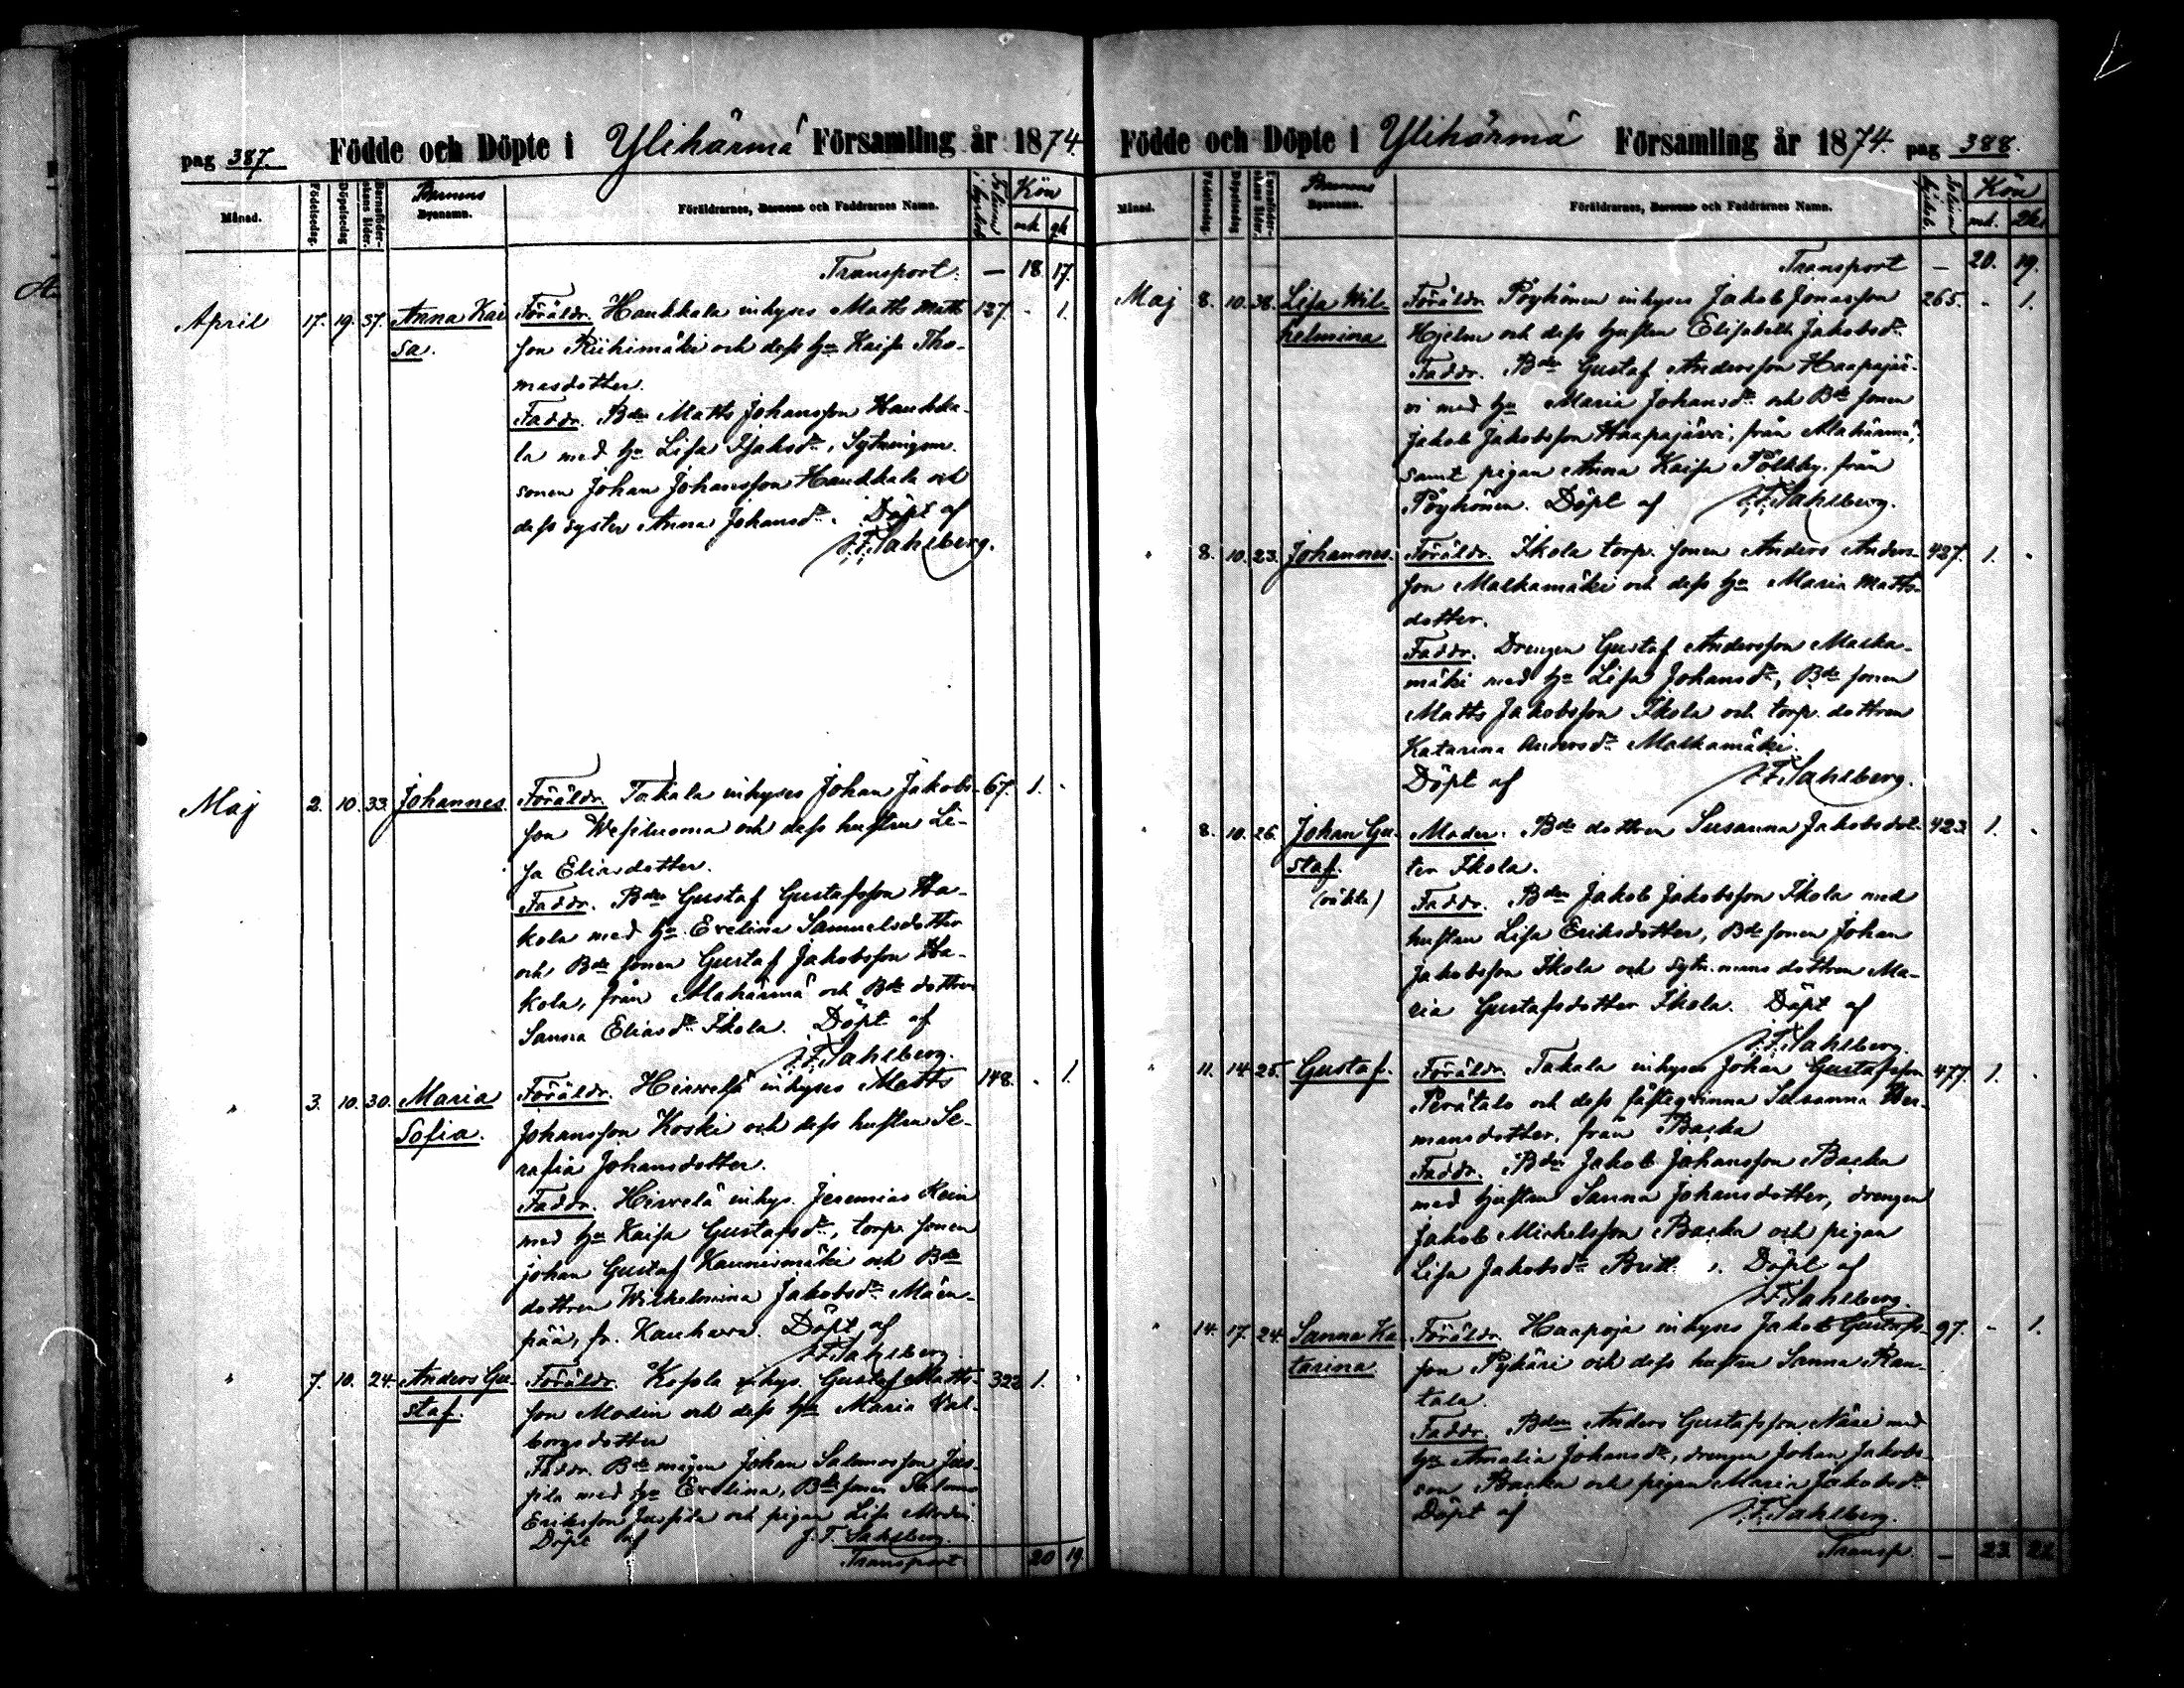 pag 387. Födde och Döpte i Ylihärmä Församling år 1874.
Månad. Födelsedag. Döpelsedag Barnaföderskans ålder. Barnens Byanamn. Föräldrarnes, Barnens och Faddrarnes Namn. Kön
mk qk
Transport. — 18. 17.
April 17. 19. 37. Anna Kai Föräldr. Haukkala inhyses Matts Matts 127. - 1.
sa. son Riihimäki och dess hu Kaisa Tho-
masdotter.
Faddr. Bdn Matts Johansson Haukka-
la med hu Lisa Isaksdr, Sytningsm.
sonen Johan Johansson Haukkala och
dess syster Anna Johansdr. Döpt af
J.F. Sahlberg.
Maj 2. 10. 33. Johannes. Föräldr. Takala inhyses Johan Jakobs- 67. 1. -
son Wesiluoma och dess hustru Li-
sa Eliasdotter.
Faddr. Bdn Gustaf Gustafsson Ha-
kola med hu Evelina Samuelsdotter
och Bde sonen Gustaf Jakobsson Ha-
kola, från Alahärmä och Bde dottren
Sanna Eliasdr Ikola. Döpt af
J.F. Sahlberg.
" 3. 10. 30. Maria Föräldr. Hirvelä inhyses Matts 148. - 1.
Sofia. Johansson Koski och dess hustru Se-
rafia Johansdotter.
Faddr. Hirvelä inhys. Jeremias Rein
med hu Kaisa Gustafsdr, torp. sonen
Johan Gustaf Kaunismäki och Bde
dottren Wilhelmina Jakobsdr Mäen-
pää, fr. Kauhava. Döpt af
J.F. Sahlberg.
" 7. 10. 24. Anders Gu- Föräldr. Kosola hys. Gustaf Matts- 322 1. -
staf. son Modin och dess hu Maria Val-
borgsdotter
Faddr. Bde mågen Johan Salomosson Jus-
sila med hu Evelina, Bde sonen Salomo
Eriksson Jussila och pigan Lisa Modin
Döpt af J.F. Sahlberg.
Transport. 20 19
Födde och Döpte i Ylihärmä Församling år 1874. pag 388.
Månad. Födelsedag. Döpelsedag Barnaföderskans ålder. Barnens Byanamn. Föräldrarnes, Barnens och Faddrarnes Namn. Kön
mk. qk.
Transport — 20. 19.
Maj 8. 10. 38. Lisa Wil- Föräldr. Pöyhönen inhyses Jakob Jonasson 265. - 1.
helmina Hjelm och dess hustru Elisabeth Jakobsdr.
Faddr. Bdn Gustaf Andersson Haapajär-
vi med hu Maria Johansdr och Bde sonen
Jakob Jakobsson Haapajärvi, från Alahärmä,
samt pigan Anna Kaisa Pölkky, från
Pöyhönen. Döpt af J.F. Sahlberg.
" 8. 10. 23. Johannes. Föräldr. Ikola torp. sonen Anders Anders- 427. 1. -
son Malkamäki och dess hu Maria Matts-
dotter.
Faddr. Drengen Gustaf Andersson Malka-
mäki med hu Lisa Johansdr, Bde sonen
Matts Jakobsson Ikola och torp. dottren
Katarina Andersdr Malkamäki.
Döpt af J.F. Sahlberg.
" 8. 10. 26. Johan Gu- Moder. Bde dottren Susanna Jakobsdot- 423. 1. -
staf. ter Ikola.
(oäkta) Faddr. Bdn Jakob Jakobsson Ikola med
hustru Lisa Eriksdotter, Bde sonen Johan
Jakobsson Ikola och sytn. mans dottren Ma-
ria Gustafsdotter Ikola. Döpt af
J.F. Sahlberg.
" 11. 14. 25. Gustaf. Föräldr. Takala inhyses Johan Gustafsson 477. 1. -
Perätalo och dess fästeqvinna Susanna Her-
mansdotter, från Backa
Faddr. Bdn Jakob Johansson Backa
med hustru Sanna Johansdotter, drengen
Jakob Mickelsson Backa och pigan
Lisa Jakobsdr Döpt af
J.F. Sahlberg.
" 14. 17. 24. Sanna Ka- Föräldr. Haapoja inhyses Jakob Gustafs- 97. - 1.
tarina son Pykäri och dess hustru Sanna Ran-
tala.
Faddr. Bdn Anders Gustafsson Näsi med
hu Amalia Johansdr, drengen Johan Jakobs-
son Backa och pigan Maria Jakobsdr
Döpt af J.F. Sahlberg.
Transp. — 23. 21